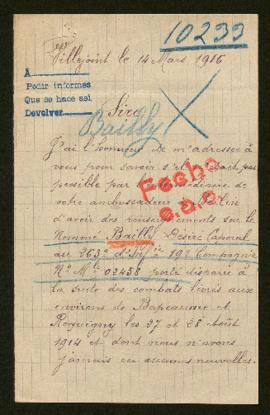 10233
Villejoint le 14 Mars 1916
A
Pedir informes
Que se hace así
Devolver
Sire
Bailly
J'ai l'honneur de m'adresser à
vous pour savoir s'il ne serait pas
possible par l'intermédiaire de
votre ambassadeur à Berlin
d'avoir des renseignements sur le
Nommé Bailly Désiré Caporal
au 263e d'Inf ie 19e Compagnie
No Mle 02458 porté disparu à
la suite des combats livrés aux
environs de Bapeaume et
Roquigny les 27 et 28 Août
1914 et dont nous n'avons
jamais eu aucunes nouvelles.
Fecho